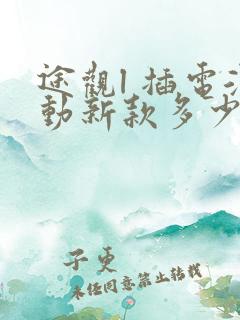 途觀l 插電混
動新款多少
子更
未經同意禁止转载